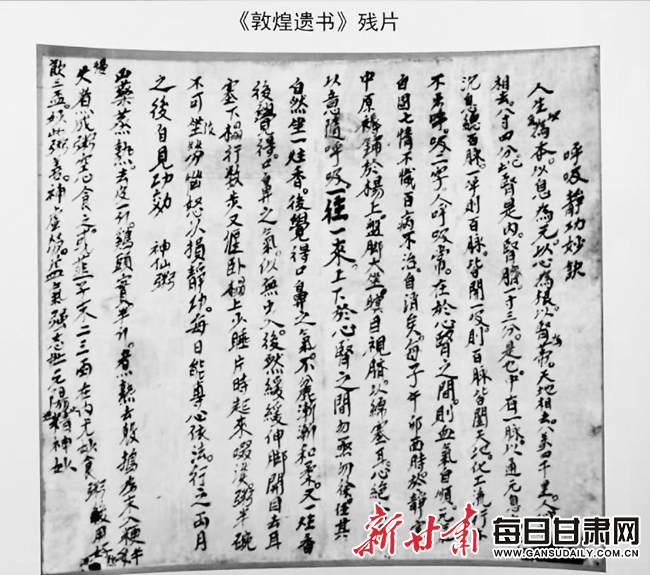 《敦煌遗书》残片
呼吸靜功妙訣
人生以氣為本。以息為元。以心為根。以腎為蒂。天地相去。八萬四千里。人心腎
相去。八寸四分。此腎是內腎。臍下一寸三分。是也。中有一脉。以通元息之
沉。息總百脉。一呼則百脉皆開。一吸則百脉皆闔。天地化工流行。亦
不出呼吸二字。人呼吸常在於心腎之間。則血氣自順。元氣
自固。七情不熾。百病不治。自消矣。每子午卯酉時。於靜室
中。厚褥鋪於榻上。盤脚大坐。瞑目視臍。以綿塞耳。心絕
以意隨呼吸一往一來。上下於心腎之間。勿亟勿徐。任其
自然。坐一炷香。後覺得口鼻之氣。不麄。漸漸和柔。又一炷香
後。覺得口鼻之氣。似無出入。後然緩緩伸脚開目。去耳
塞。下榻行數步。又偃卧榻上。少睡片時。起來啜淡粥半碗
不可勞惱怒。以損靜功。每日能專心依法行之。兩月
之後。自見功効
神仙粥
山藥蒸熟。去皮一斤。鷄頭實半斤。煮熟去殼搗為末。入粳半升
火煮成粥。空心食之。或韮子末二三兩在內尤妙。食粥後用好
飲三盃。妙。此粥善補虛勞。益氣強志。壯元陽。神妙
新甘肃
每日甘肃网
WWW.GANSUDAILY.COM.CN